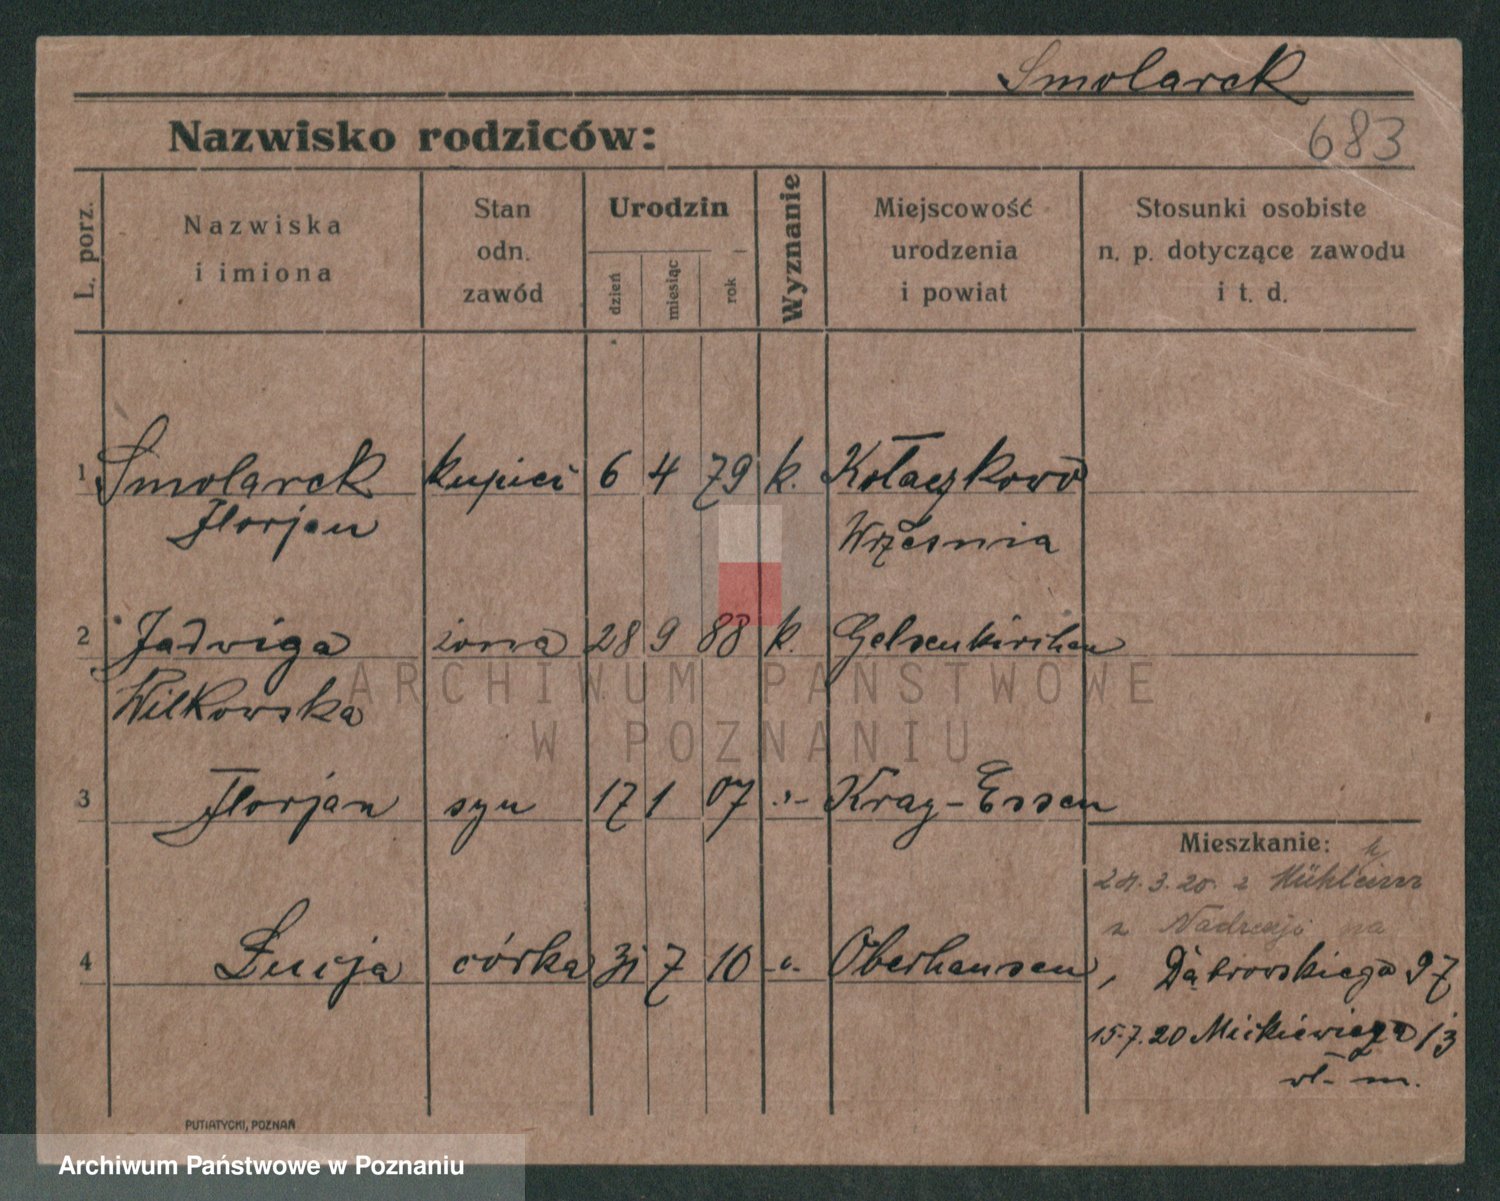 Smolarek
683
Nazwisko rodziców:
L. porz.
Nazwiska
i imiona
Stan
odn.
zawód
Urodzin
dzień
miesiąc
rok
Wyznanie
Miejscowość
urodzenia
i powiat
Stosunki osobiste
n. p. dotyczące zawodu
i t. d.
1 Smolarek kupiec 6 4 79 k. Kołaczkowo
Florjan Września
2 Jadwiga żona 28 9 88 k. Gelsenkirchen
Wilkowska
3 Florjan syn 17 1 07 -"- Kray-Essen
Mieszkanie:
24.3.20. z
z Nadzieji na
4 Łucja córka 31 7 10 -"- Oberhausen
Dąbrowskiego 97
15.7.20 Mickiewicza 13
wł. m.
PUTIATYCKI, POZNAŃ
ARCHIWUM PAŃSTWOWE
W POZNANIU
Archiwum Państwowe w Poznaniu